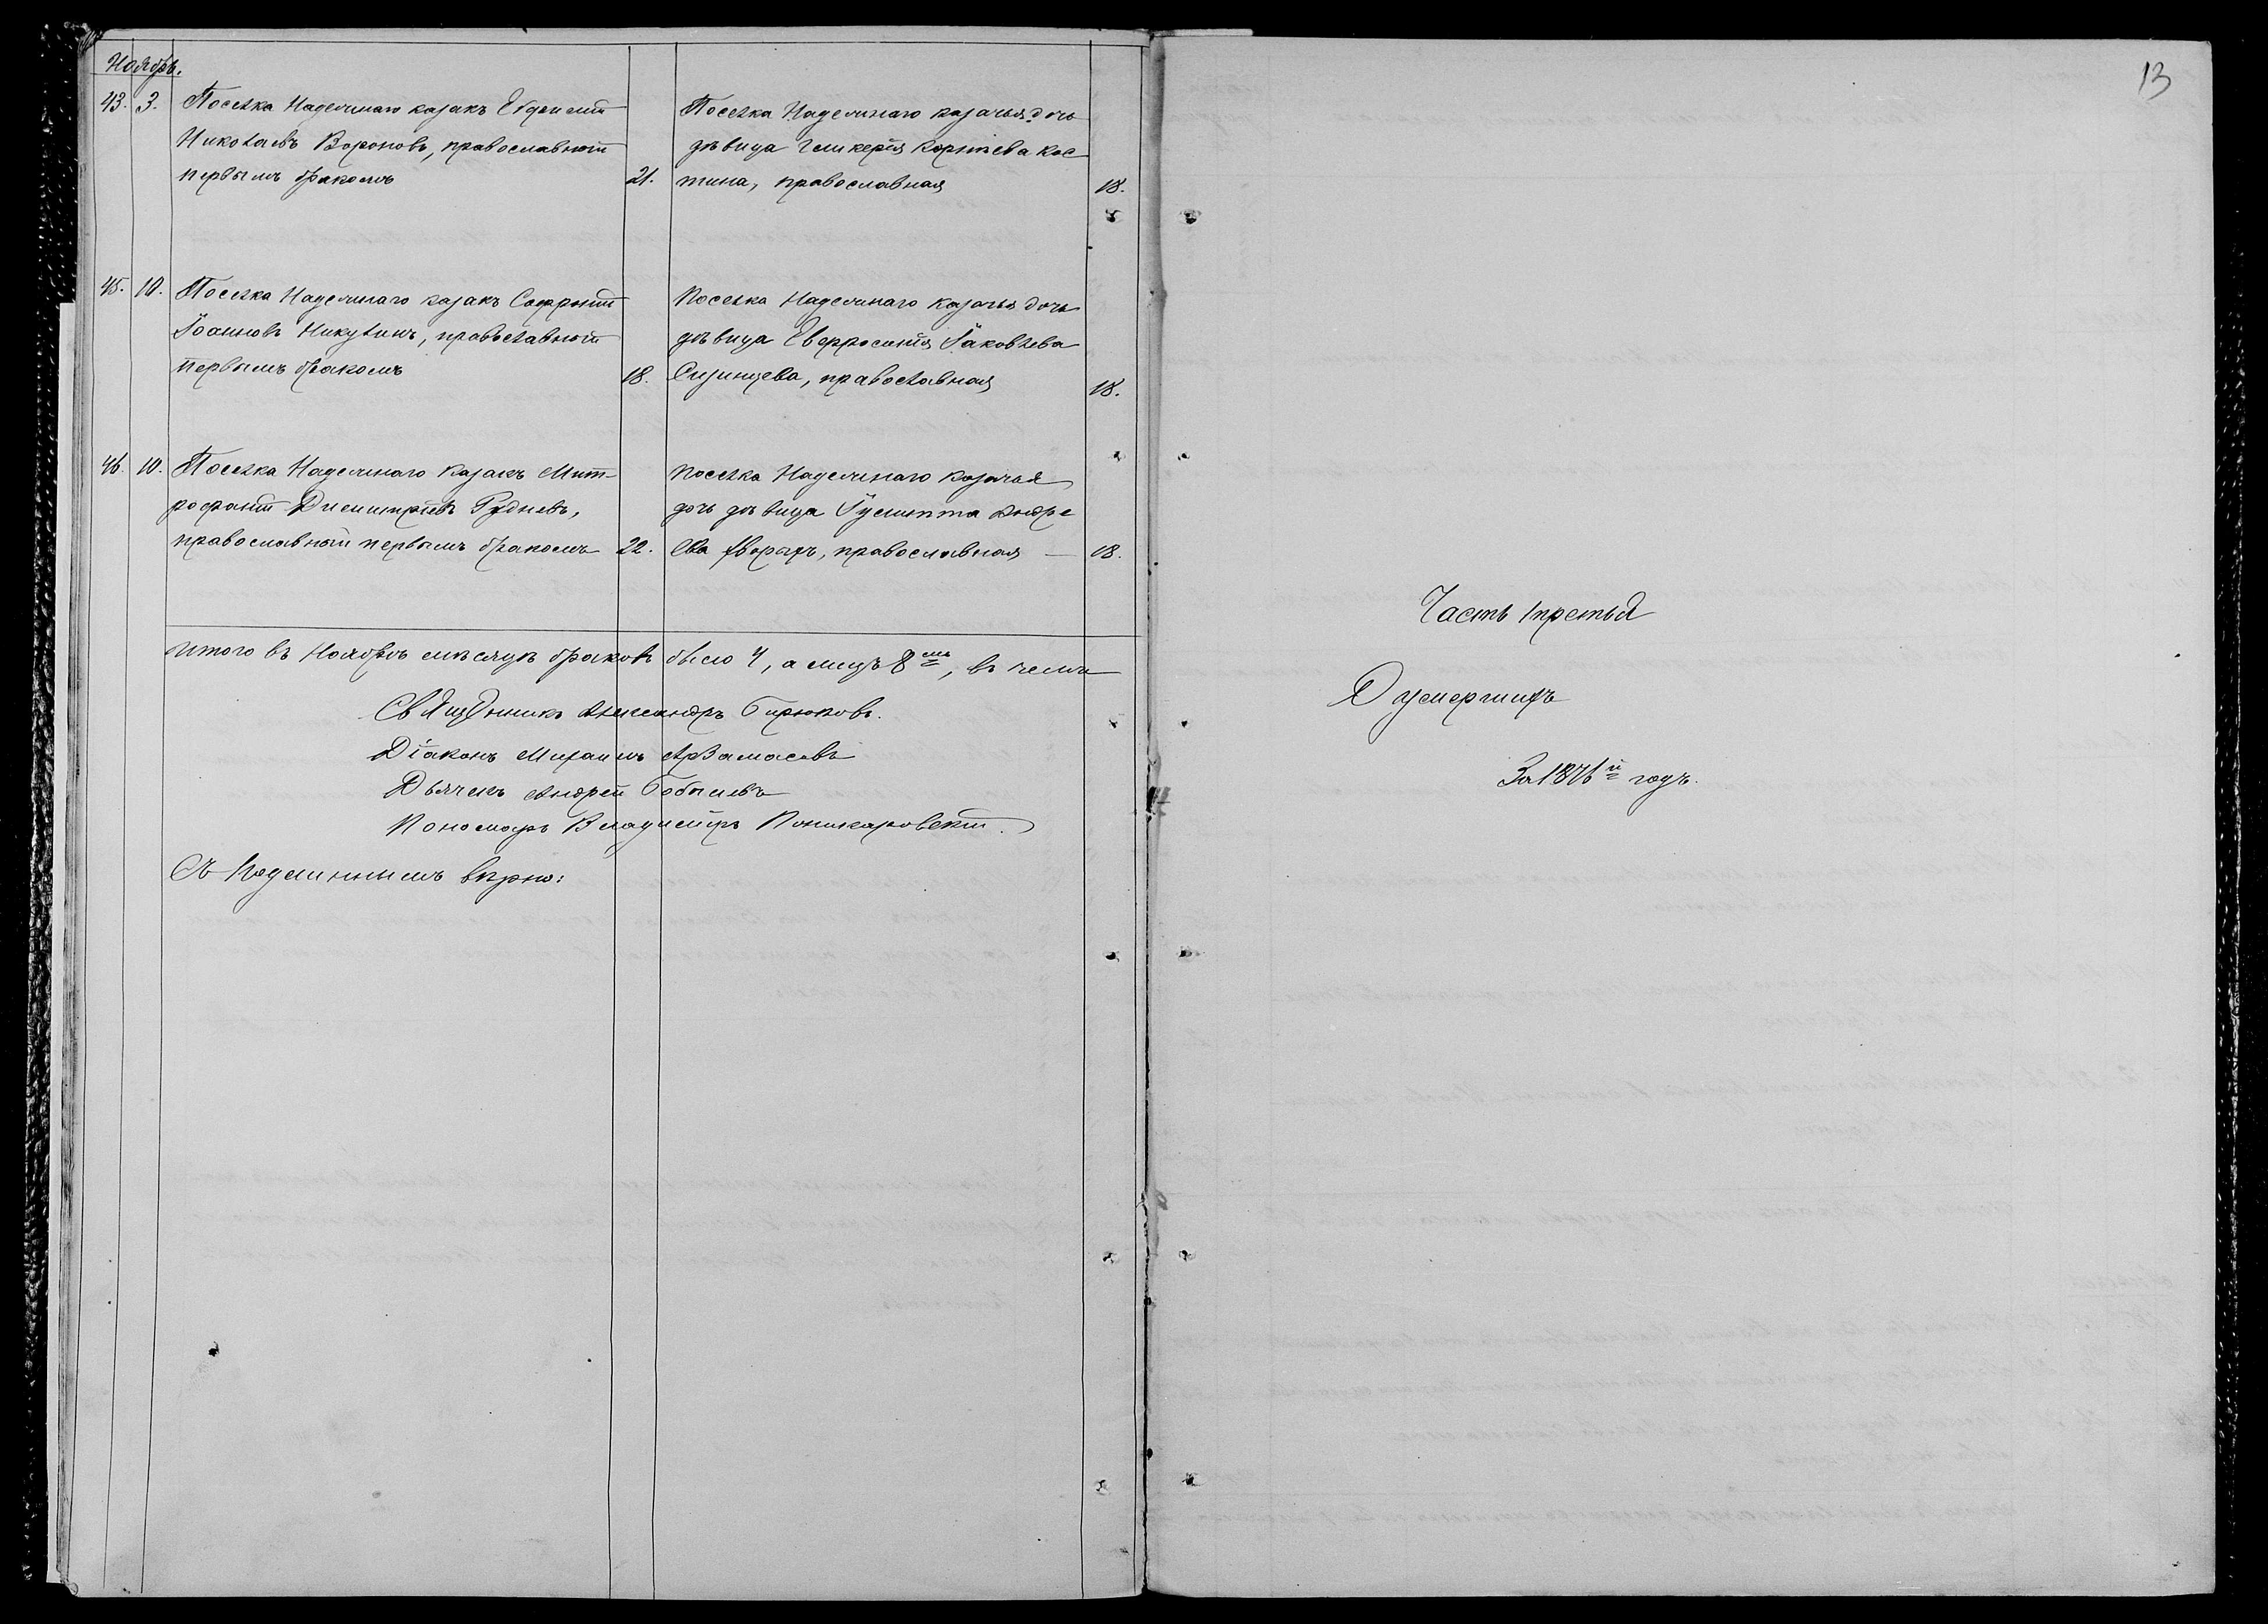 Ноябрь.
43. 3. Поселка Надежинаго казакъ Евфимій
Николаевъ Вороновъ, православный
первымъ бракомъ 21.
Поселка Надежинаго казачья дочь
дѣвица Гликерія Корнѣева Кос
тина, православная 18.
45. 10. Поселка Надежинаго казакъ Софроній
Іоанновъ Никулинъ, православный
первымъ бракомъ 18.
Поселка Надежинаго казачья дочь
дѣвица Евфросинія Іаковлева
Сизинцева, православная 18.
46. 10. Поселка Надежинаго казакъ Мит-
рофаній Димитріевъ Рудневъ,
православный первымъ бракомъ 22.
Поселка Надежинаго казачья
дочь дѣвица Іулитта Андре
ева православная 18.
Итого въ Ноябрѣ мѣсяцѣ браковъ было 4, а лицъ 8мь, въ чемъ
Священникъ Александръ Бирюковъ.
Діаконъ Михаилъ Арзамасовъ
Дьячекъ Андрей Бобылевъ
Пономарь Владиміръ Поликаровскій.
Съ Подлиннымъ вѣрно:
13
Часть третья
О умершихъ
За 1876й годъ.